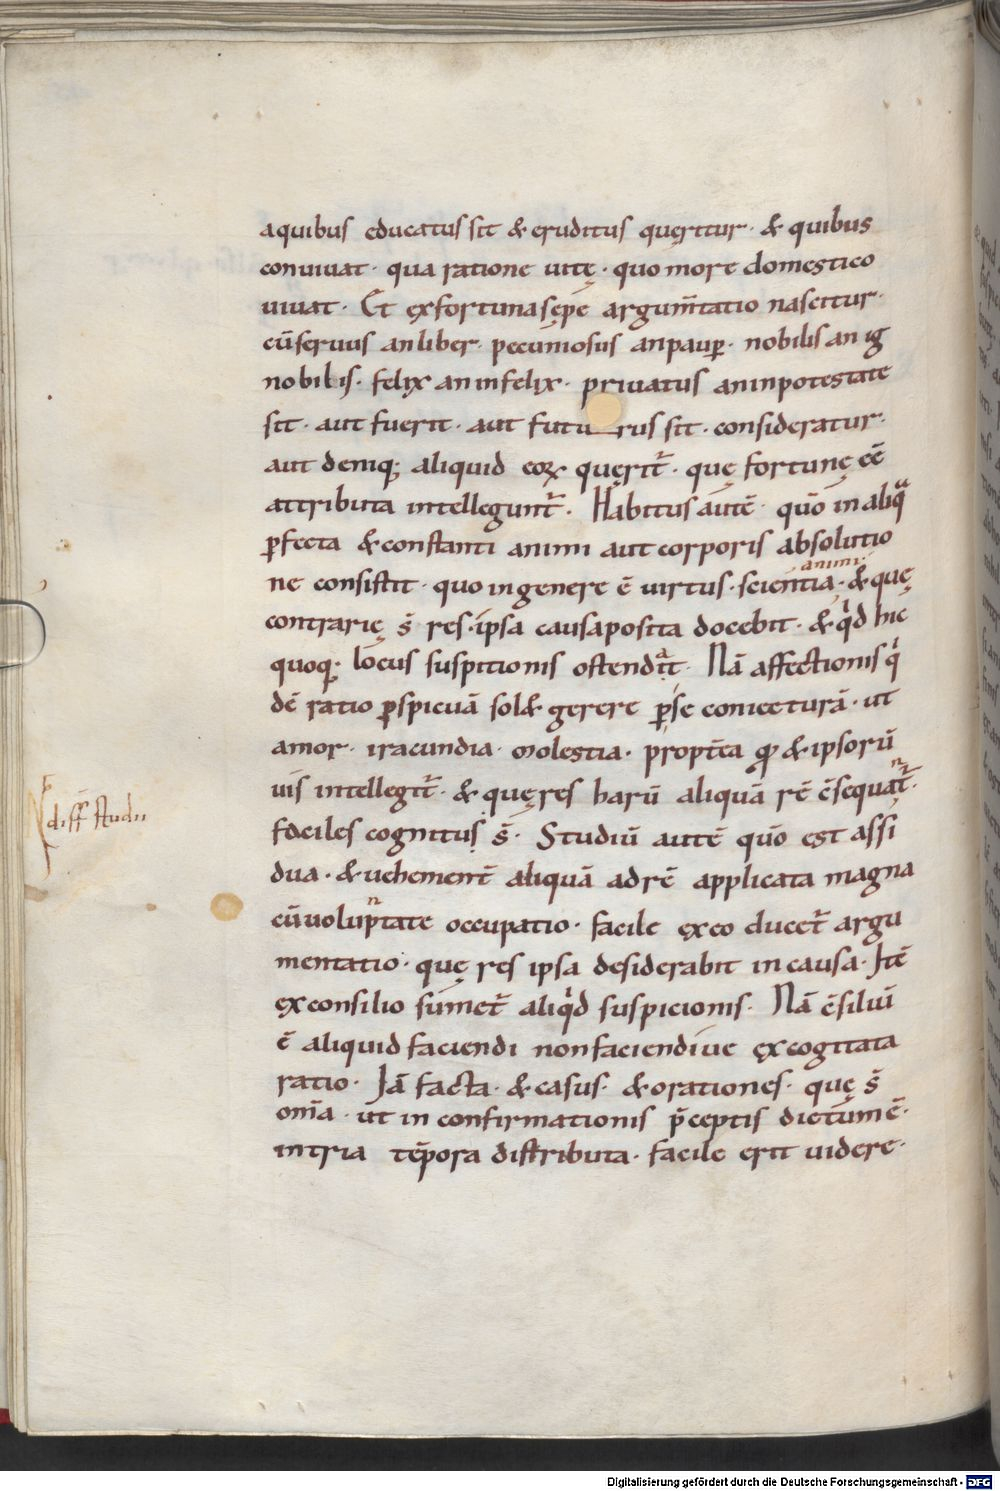 aquibus educatus sit & eruditus quęritur · & quibus
conuiuat · qua ratione uitę · quo more domestico
uiuat · Et ex fortuna sępe argum̄tatio nascitur ·
cū seruus an liber · pecuniosus an paup̲ · nobilis an ig
nobilis · felix an infelix · priuatus an inpotestate
sit · aut fuerit · aut futurus sit · consideratur ·
aut deniq; aliquid eoꝝ quęrit̄ · quę fortunę eē
attributa intellegunt̄ · Habitus autē quō in aliqᵃ
ꝑfecta & constanti animi aut corporis absolutio
ne consistit · quo in genere ē uirtus · scientia · & quę
animi
contrarię s̄ res · ipsa causa posita docebit · & qͥd hic
quoq; locus suspitionis ostendᵃt · Nā affectionis qͥ
dē ratio ꝑspicuā sol& gerere ꝑse coniecturā · ut
amor · iracundia · molestia · propt̄ea qđ & ipsorū
uis intellegit̄ · & quę res harū aliquā rē c̄sequant̄ ·
faciles cognitus s̄ · Studiū autē quō est assi
dua · & uehement̄ aliquā ad rē applicata magna
cū uoluptate occupatio · facile ex eo ducet̄ argu
mentatio · quę res ipsa desiderabit in causa · Itē
ex consilio sumet̄ aliqͥd suspicionis · Nā c̄siliū
ē aliquid faciendi non faciendiue excogitata
ratio · Jā facta · & casus · & orationes · quę s̄
om̄ia · ut in confirmationis p̄ceptis dictum ē ·
in tria tēpora distributa · facile erit uidere ·
diff studii
Digitalisierung gefördert durch die Deutsche Forschungsgemeinschaft - DFG